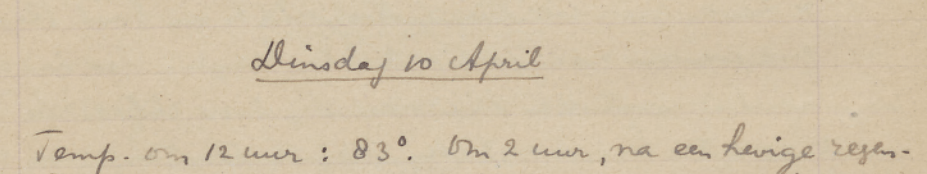 Dinsdag 10 April
Temp. om 12 uur : 83°. Om 2 uur, na een hevige regen-